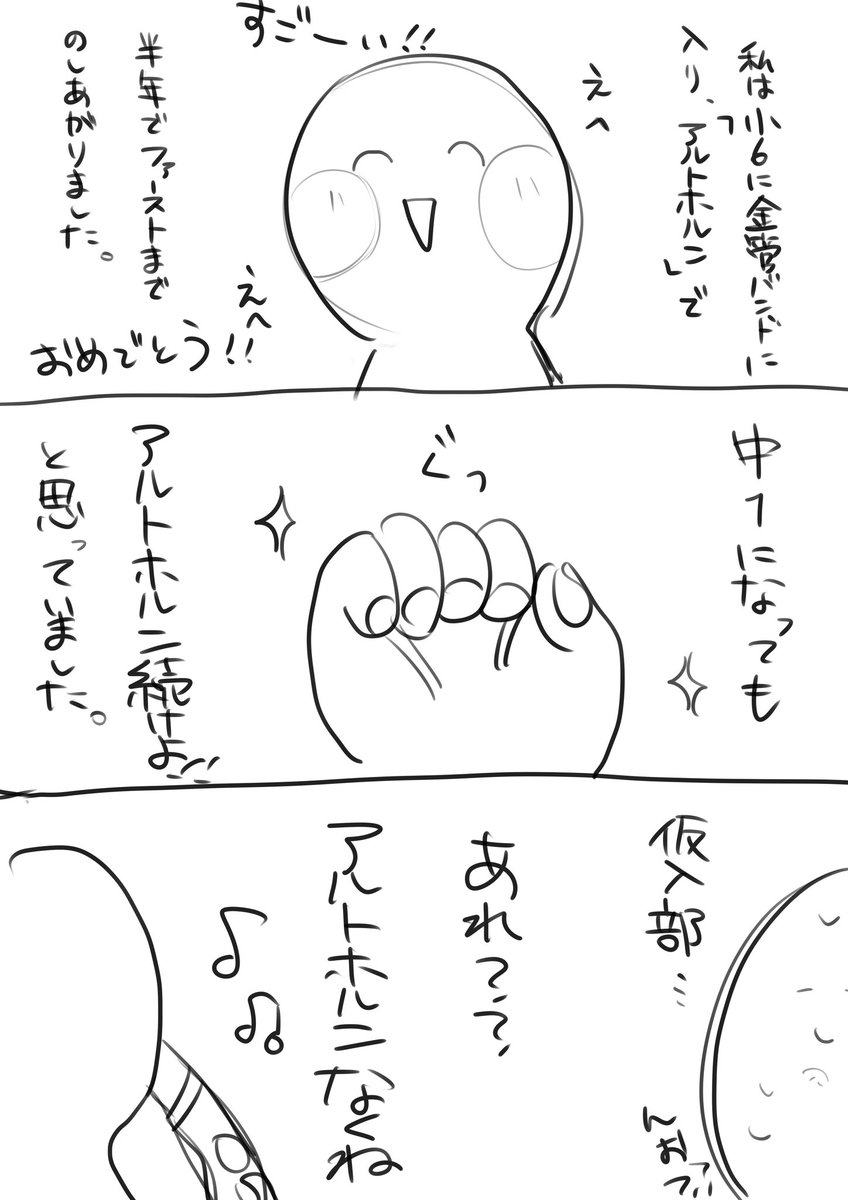 私は小6に金管バンドに
入り、「アルトホルン」で
えへ
すごーい!!
半年でファーストまで
のしあがりました。
えへ
おめでとう!!
中1になっても
ぐっ
アルトホルン続けよ!!
と思っていました。
仮入部…
んおっ?
あれ??
アルトホルンなくね